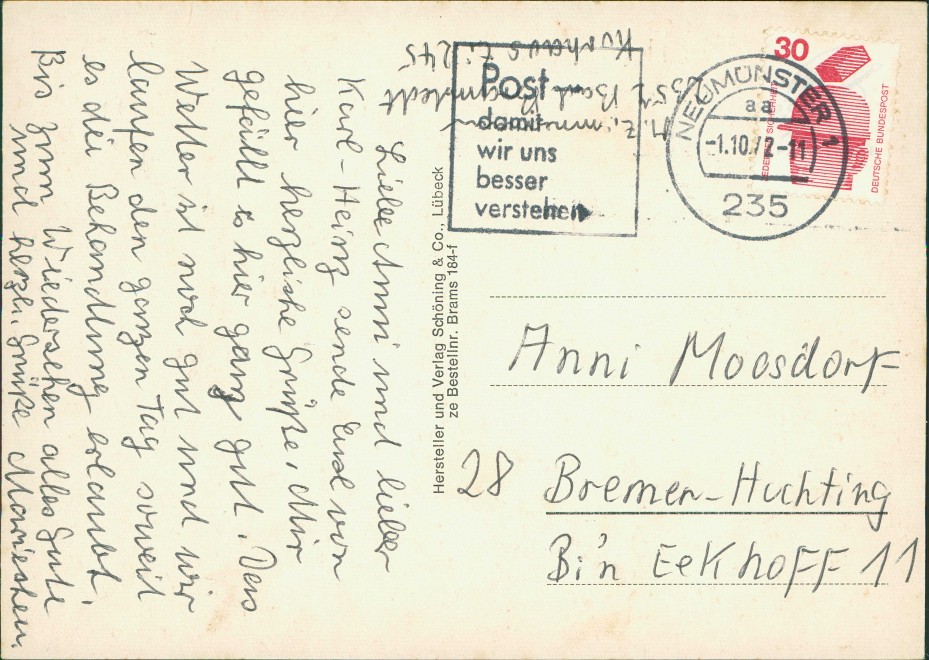 Liebe Anni und lieber
Karl-Heinz sende Euch von
hier herzliche Grüße. Mir
gefällt es hier ganz gut. Das
Wetter ist noch gut und wir
laufen den ganzen Tag soweit
es die Behandlung erlaubt.
Bis zum Wiedersehen alles Gute
und herzl. Grüße Mariechen
Hersteller und Verlag Schöning & Co., Lübeck
ze Bestellnr. Brams 184-f
2357 Bad Bramstedt
Kurhaus Zi. 245
Post
damit
wir uns
besser
verstehen
NEUMÜNSTER 1
aa
-1.10.72-11
235
30
JEDERZEIT SICHERHEIT
DEUTSCHE BUNDESPOST
Anni Moosdorf
28 Bremen-Huchting
Bi'n Eekhoff 11